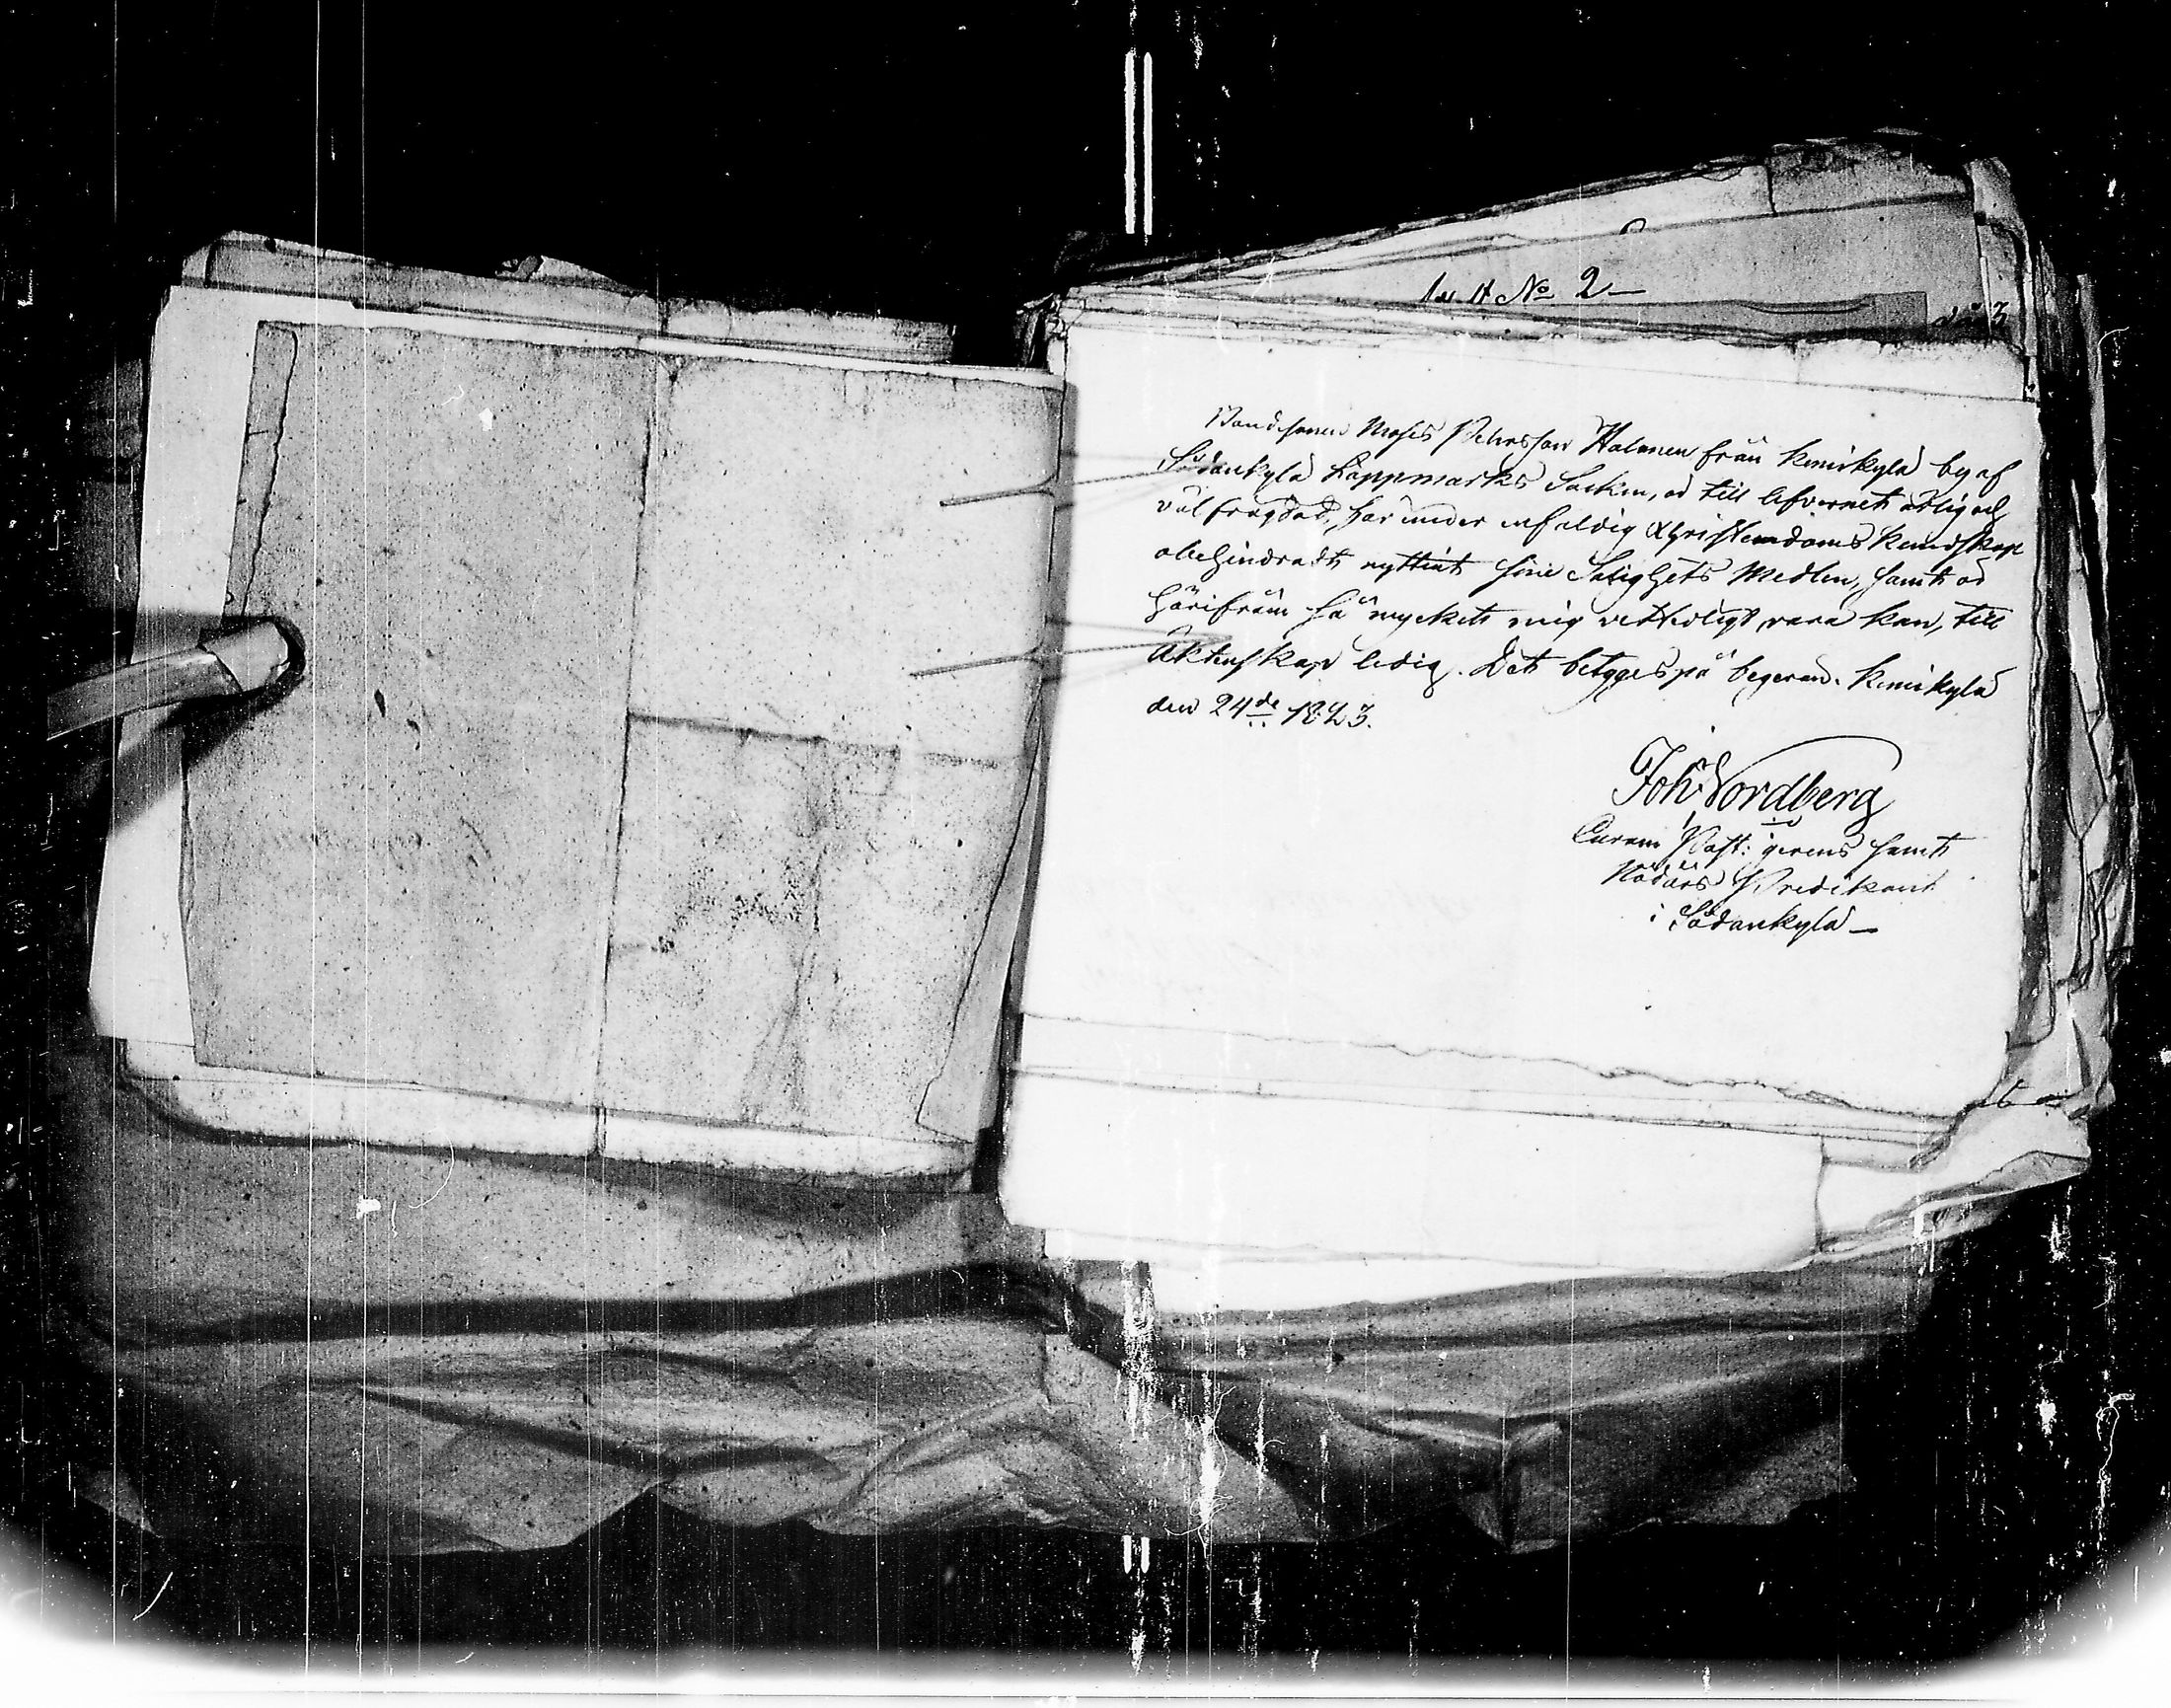 N<sup>o</sup> 2
3
Bondsonen Moses Pehrsson Halonen från Kemikylä by af
Sodankylä Lappmarks Socken, är till lefvernet ärlig och
välfrägdad, har under enfaldig Christendoms kundskap
obehindradt nyttiat sine Salighets Medlen, samt är
härifrån så myckett mig vetterligt vara kan, till
Äktenskap ledig. Det betygges på begeran. Kemikylä
den 24de 1823.
Joh Nordberg
Curam Past: gerens samt
Nådårs Predikant
i Sodankylä